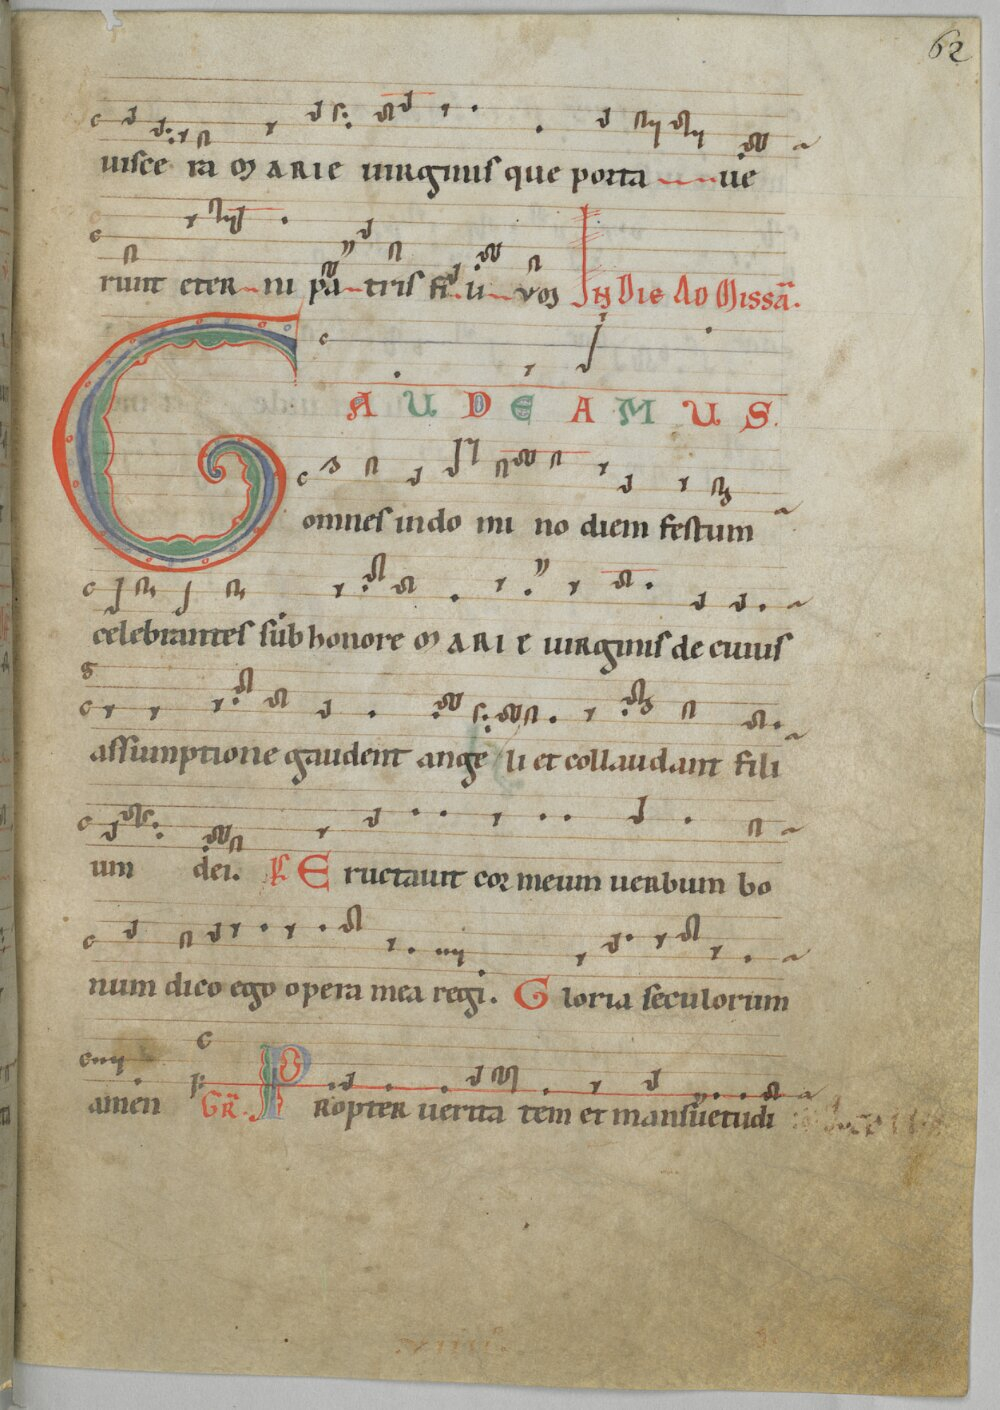 62
uisce ra MARIE uirginis que porta ue
runt eter ni pa tris fi li u vos IN Die AD Missā.
GAUDEAMUS.
omnes in do mi no diem festum
celebrantes sub honore MARIE uirginis de cuius
assumptione gaudent ange li et collaudant fili
um dei. Ps Eructauit cor meum uerbum bo
num dico ego opera mea regi. Gloria seculorum
amen GR. Propter uerita tem et mansuetudi